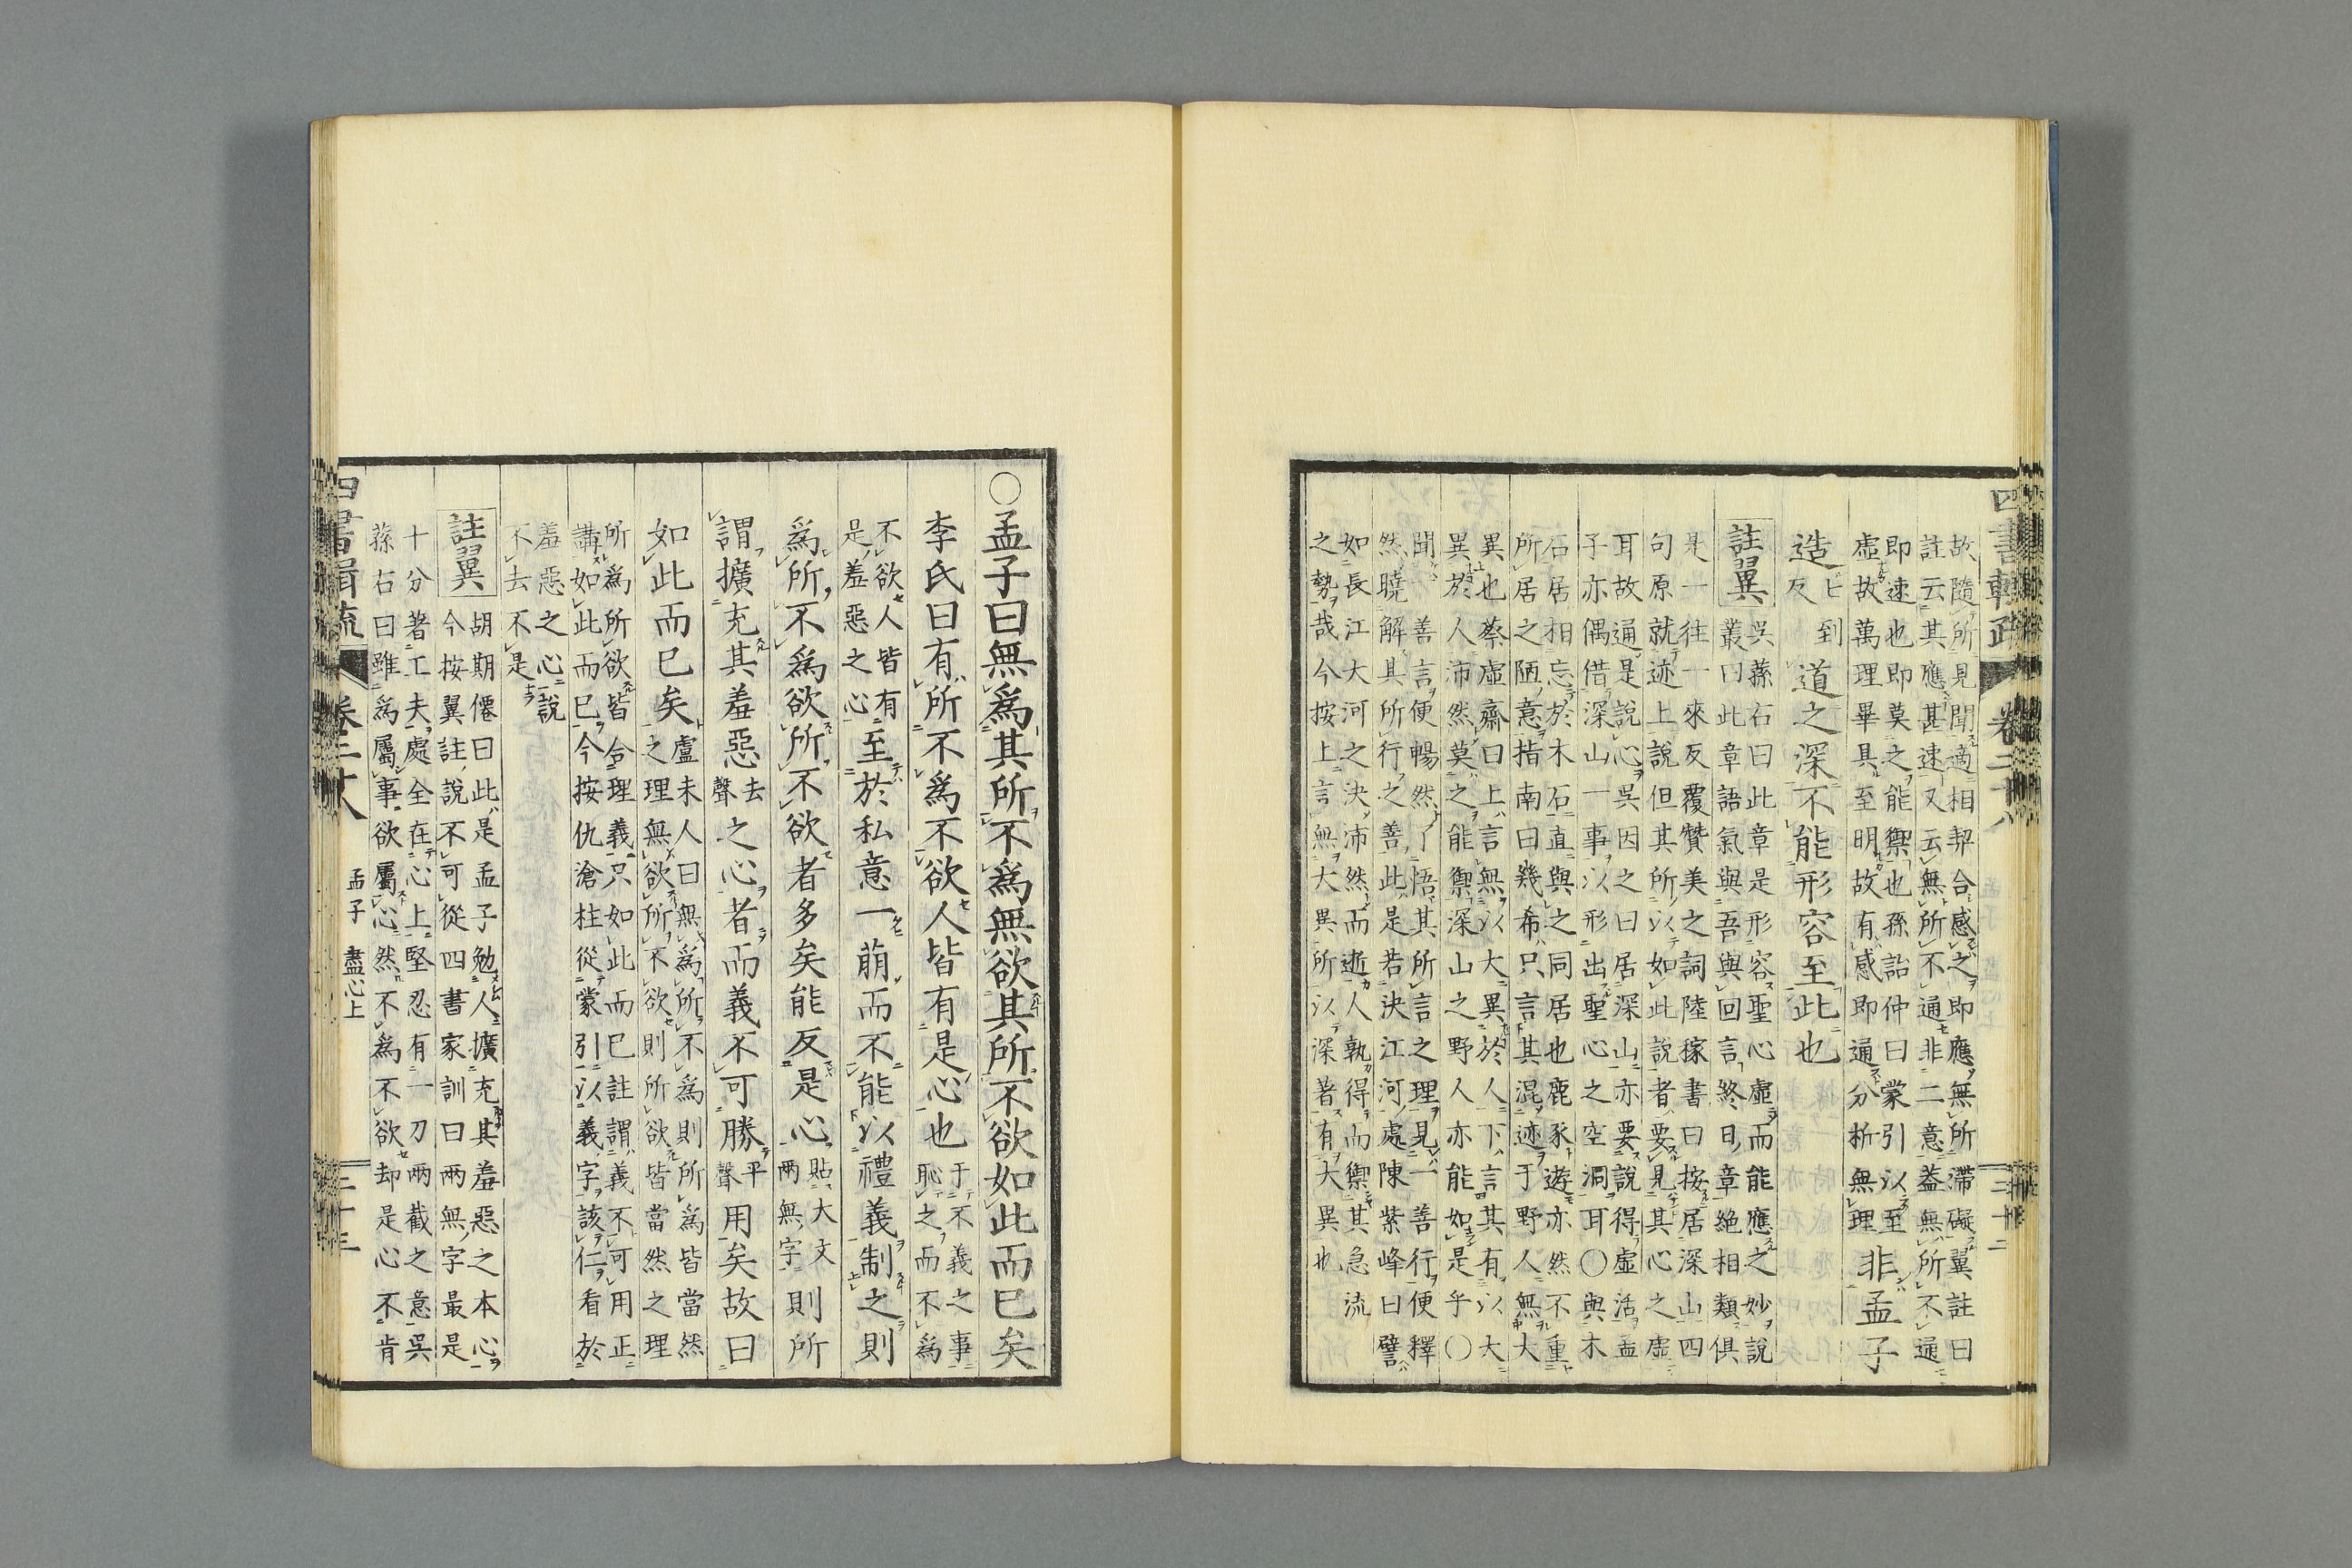 四書輯疏 卷二十八 三十二
故隨所見聞適相契合感之即應無所滯礙翼註曰
註云其應甚速又云無所不通非二意蓋無所不通
即速也即莫之能禦也孫詒仲曰蒙引以至
虛故萬理畢具至明故有感即通分析無理非孟子
造七到反道之深不能形容至此也
註翼 吳蓀右曰此章是形容聖心虛而能應之妙說
叢曰此章語氣與吾與回言終日章絕相類俱
是一往一來反覆贊美之詞陸稼書曰按居深山四
句原就迹上說但其所以如此說者要見其心之虛
耳故通是說心吳因之曰居深山亦要說得虛活孟
子亦偶借深山一事以形出聖心之空洞耳○與木
石居相忘於木石直與之同居也鹿豕遊亦然不重
所居之陋意指南曰幾希只言其混迹于野人無大
異也蔡虛齋曰上言無以大異於人下言其有以大
異於人沛然莫之能禦深山之野人亦能如是乎○
聞善言便暢然了悟其所言之理見一善行便釋
然曉解其所行之善此是若決江河處陳紫峰曰譬
如長江大河之決沛然而逝人孰得而禦其急流
之勢哉今按上言無大異所以深著有大異也
○孟子曰無爲其所不爲無欲其所不欲如此而已矣
李氏曰有所不爲不欲人皆有是心也于不義之事恥之而不爲
不欲人皆有是羞惡之心至於私意一萠而不能以禮義制之則
爲所不爲欲所不欲者多矣能反是心貼大文兩無字則所
謂擴充其羞惡去聲之心者而義不可勝平聲用矣故曰
如此而已矣盧未人曰無爲所不爲則所爲皆當然之理無欲所不欲則所欲皆當然之理
所爲所欲皆合理義只如此而已註謂義不可用正
講如此而已今按仇滄柱從蒙引以義字該仁看於
羞惡之心說
不去不是
註翼 胡期僊曰此是孟子勉人擴充其羞惡之本心
今按翼註說不可從四書家訓曰兩無字最是
十分著工夫處全在心上堅忍有一刀兩截之意吳
蓀右曰雖爲屬事欲屬心然不爲不欲却是心不肯
四書輯疏 卷二十八 孟子 盡心上 三十三